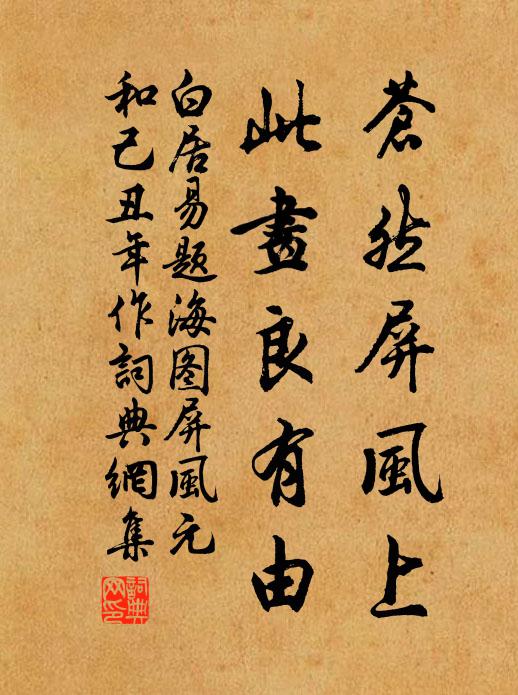 蒼然屏風上
此畫良有由
白居易題海图屏風元
和己丑年作詞典網集
詞典網印